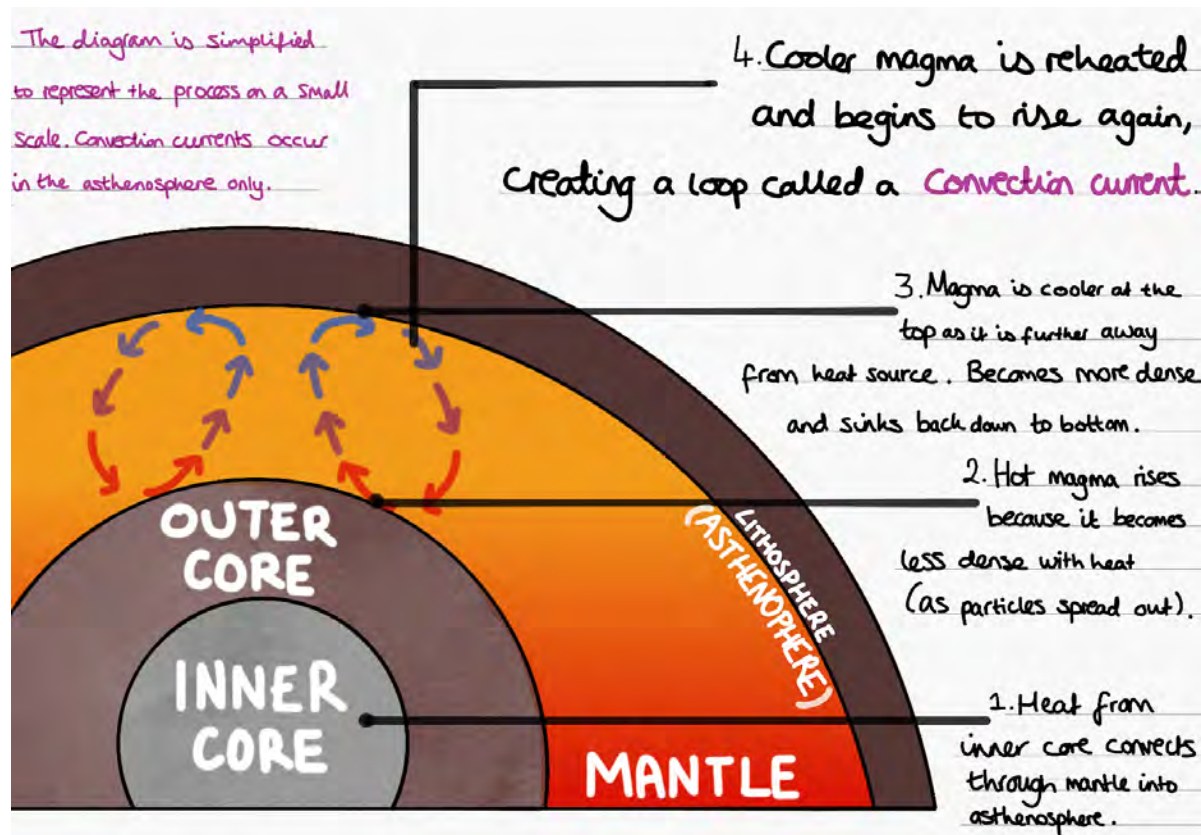 The diagram is simplified
to represent the process on a small
scale. Convection currents occur
in the asthenosphere only.
4. Cooler magma is reheated
and begins to rise again,
creating a loop called a convection current.
3. Magma is cooler at the
top as it is further away
from heat source. Becomes more dense
and sinks back down to bottom.
2. Hot magma rises
because it becomes
less dense with heat
(as particles spread out).
1. Heat from
inner core convects
through mantle into
asthenosphere.
LITHOSPHERE
(ASTHENOPHERE)
OUTER
CORE
INNER
CORE
MANTLE